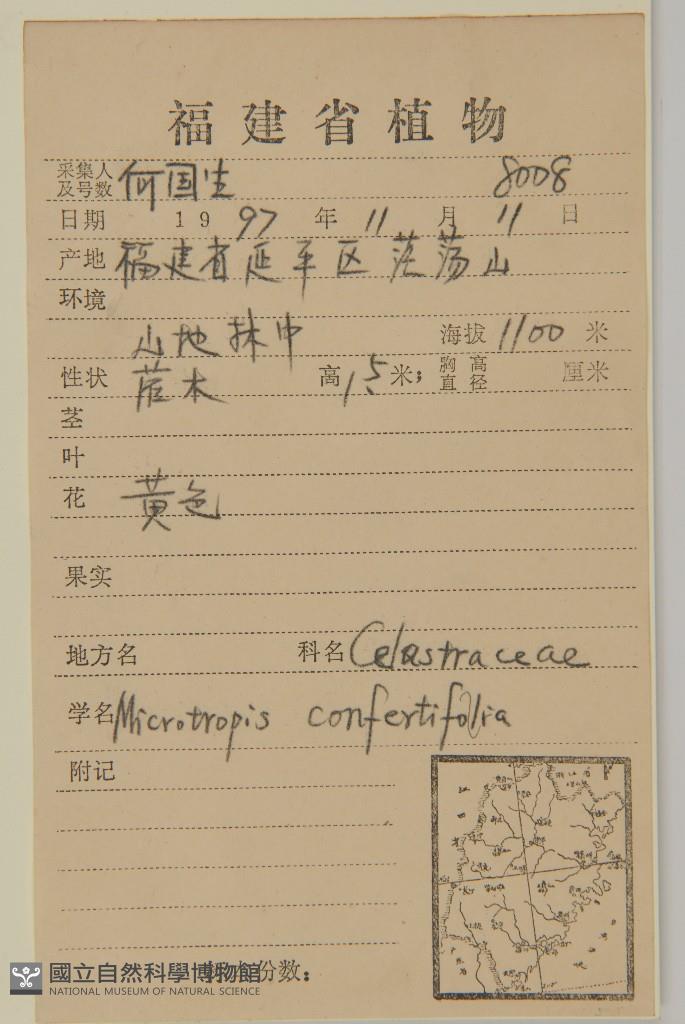 福建省植物
采集人及号数 何国生 8008
日期 1997年11月11日
产地 福建省延平区茫荡山
环境
山地林中 海拔1100米
性状 灌木 高1.5米; 胸高直径 厘米
茎
叶
花 黄色
果实
地方名 科名 Celastraceae
学名 Microtropis confertifolia
附记
份数:
國立自然科學博物館
NATIONAL MUSEUM OF NATURAL SCIENCE